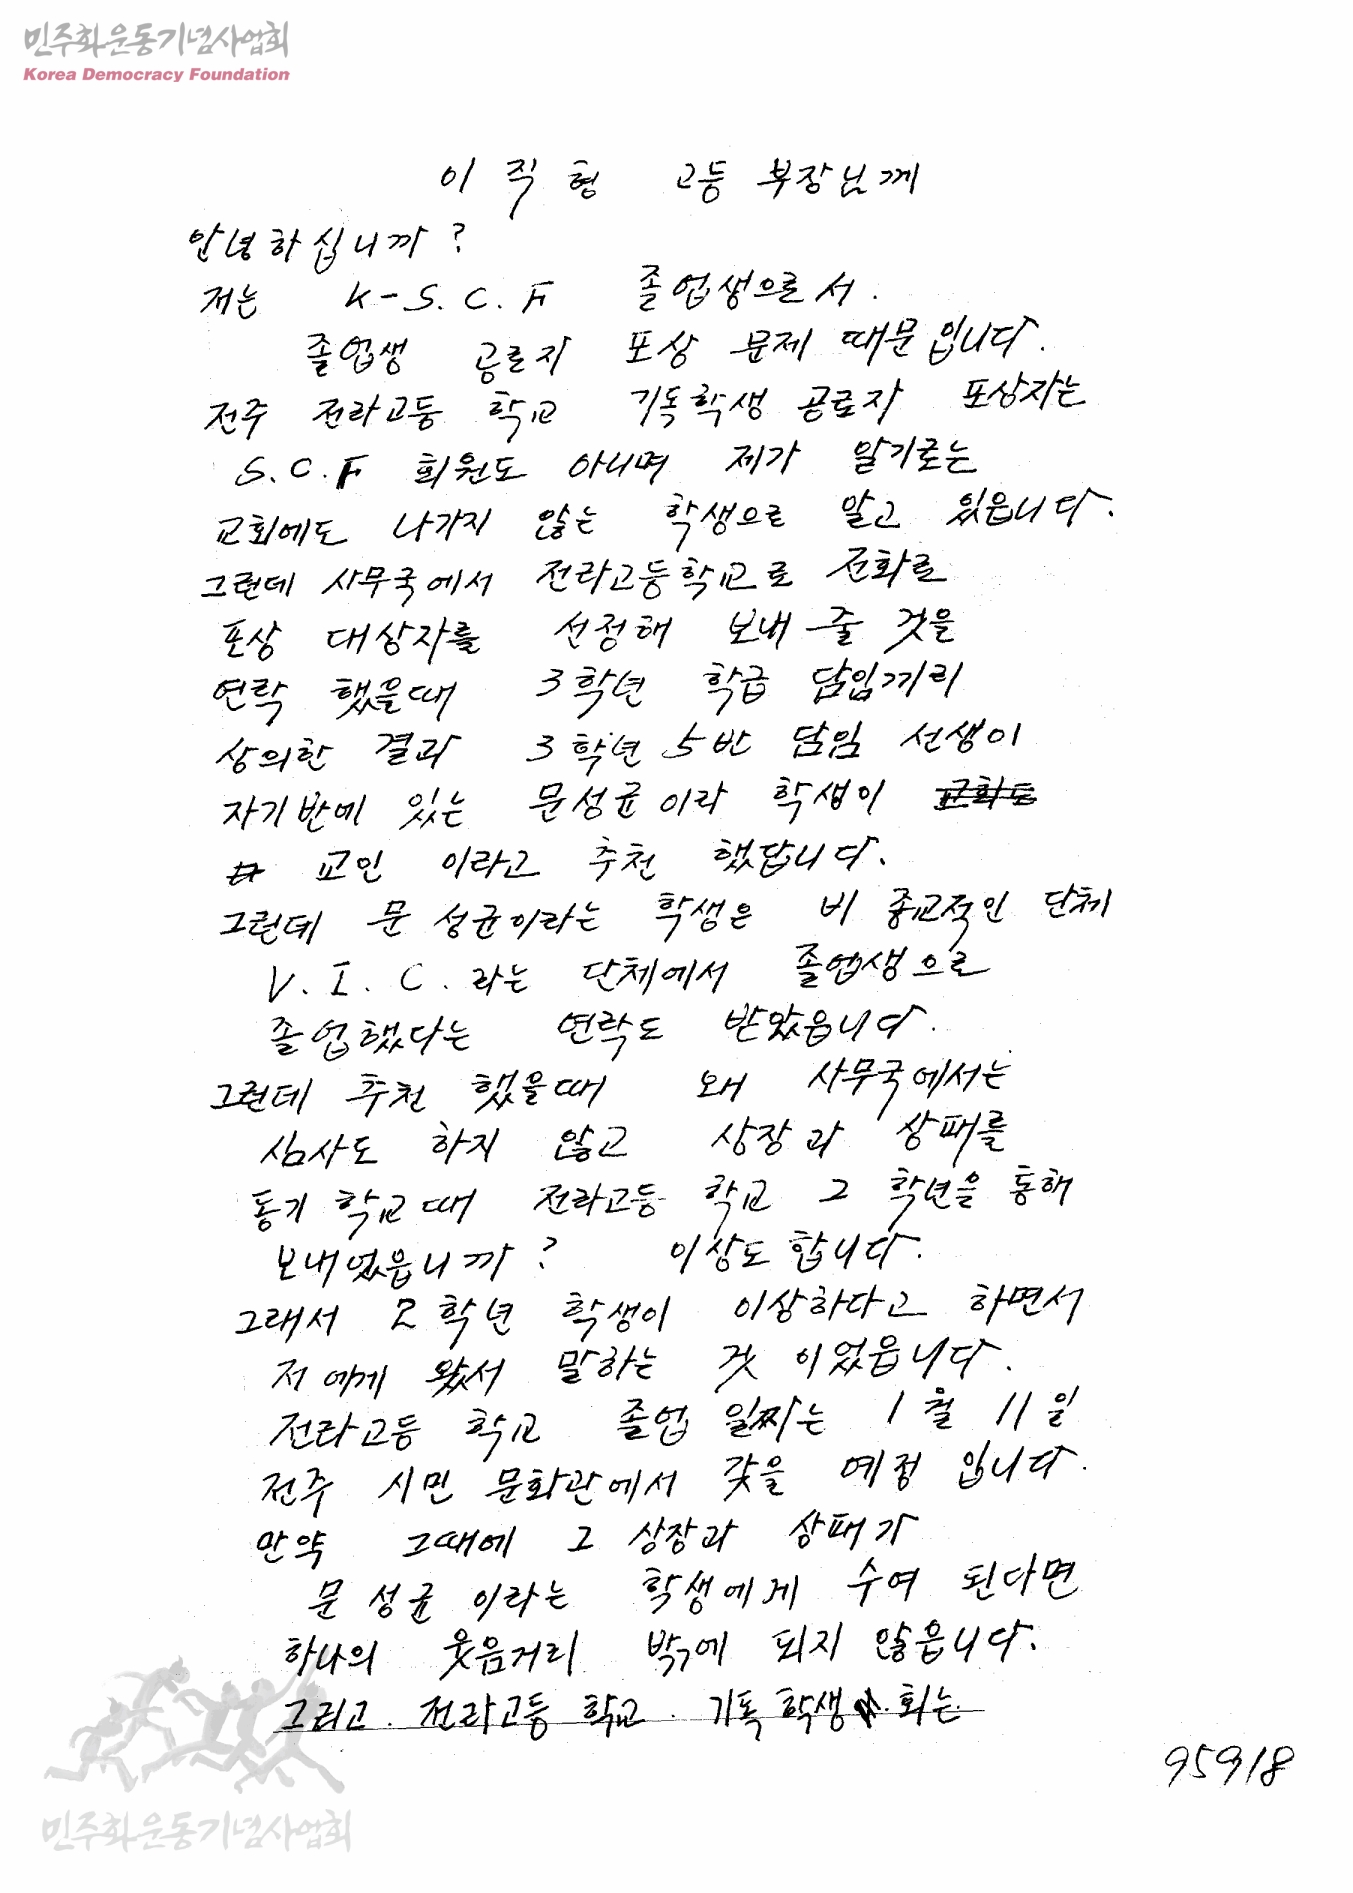 민주화운동기념사업회
Korea Democracy Foundation
이 직 형 고등 부장님께
안녕하십니까?
저는 K-S.C.F 졸업생으로서.
졸업생 공로자 포상 문제 때문입니다.
전주 전라고등 학교 기독학생 공로자 포상자는
S.C.F 회원도 아니며 제가 알기로는
교회에도 나가지 않는 학생으로 알고 있읍니다.
그런데 사무국에서 전라고등학교로 전화로
포상 대상자를 선정해 보내 줄 것을
연락 했을때 3학년 학급 담임끼리
상의한 결과 3학년 5반 담임 선생이
자기반에 있는 문성균이라 학생이 교회도
교인 이라고 추천 했답니다.
그런데 문 성균이라는 학생은 비 종교적인 단체
V.I.C.라는 단체에서 졸업생으로
졸업했다는 연락도 받았읍니다.
그런데 추천 했을때 왜 사무국에서는
심사도 하지 않고 상장과 상패를
동기 학교때 전라고등 학교 그 학년을 통해
보내었읍니까? 이상도 합니다.
그래서 2학년 학생이 이상하다고 하면서
저에게 왔서 말하는 것 이었읍니다.
전라고등 학교 졸업 일짜는 1월 11일
전주 시민 문화관에서 갖을 예정 입니다.
만약 그때에 그 상장과 상패가
문 성균 이라는 학생에게 수여 된다면
하나의 웃음거리 밖에 되지 않읍니다.
그리고. 전라고등 학교. 기독 학생. 회는
95918
민주화운동기념사업회